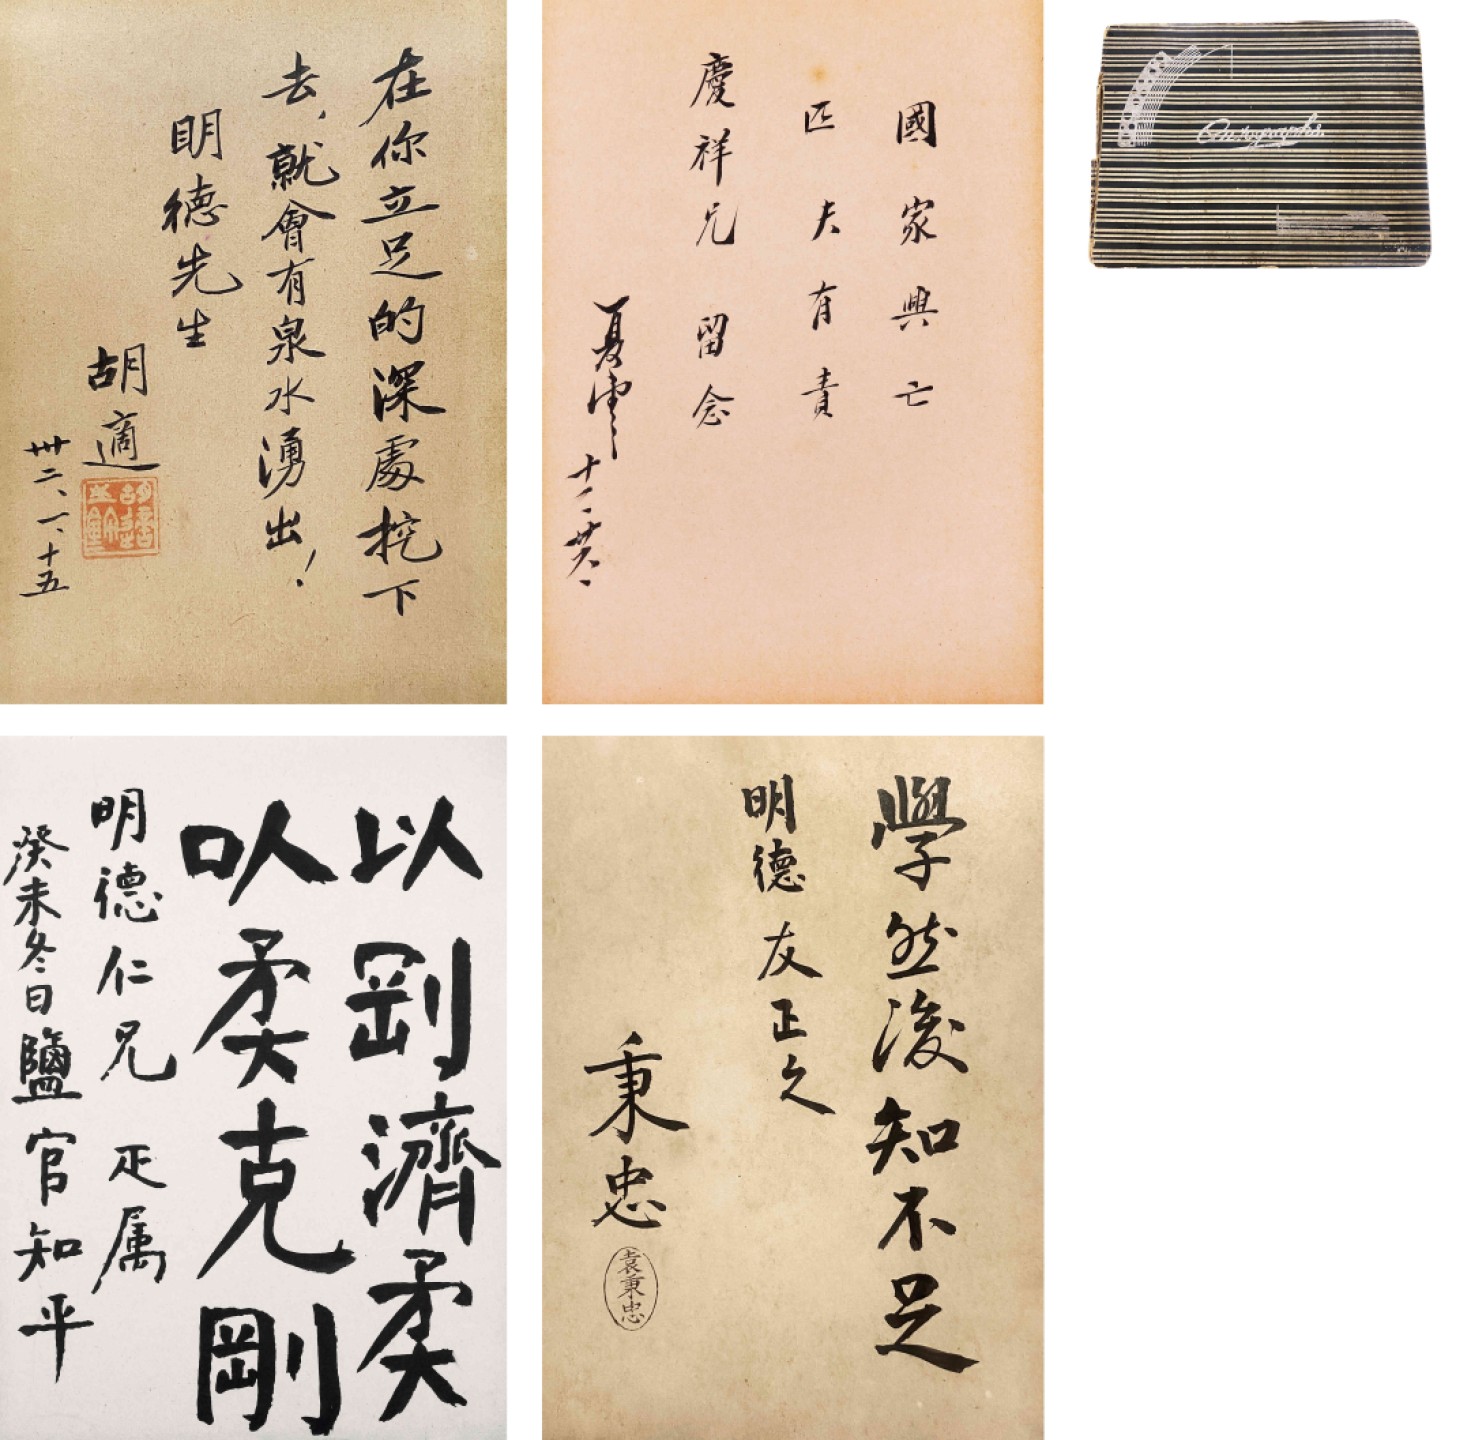 在你立足的深處挖下
去，就會有泉水湧出！
明德先生
胡適
卅二、一、十五
國家興亡
匹夫有責
慶祥兄 留念
Autographs
以剛濟柔
以柔克剛
明德仁兄 正属
癸未冬日鹽官知平
學然後知不足
明德友正之
秉忠
袁秉忠